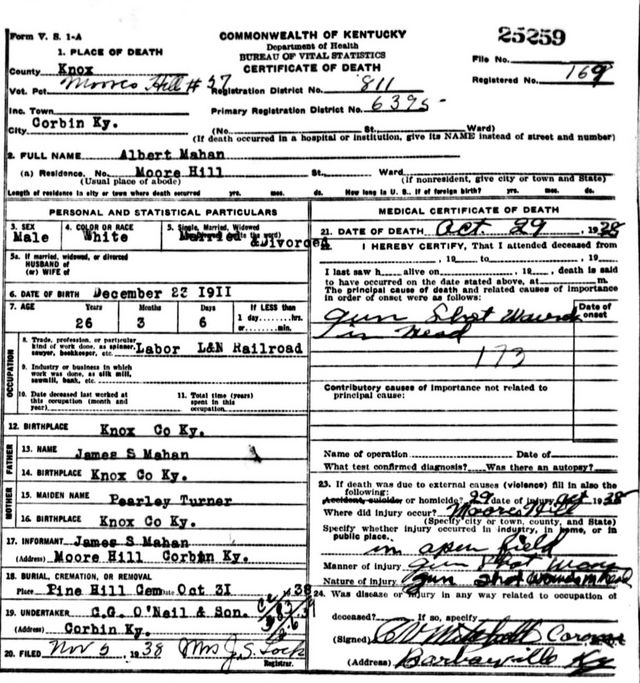 Form V. S. 1-A
COMMONWEALTH OF KENTUCKY
Department of Health
BUREAU OF VITAL STATISTICS
CERTIFICATE OF DEATH
25259
File No.
Registered No. 169
1. PLACE OF DEATH
County Knox
Vot. Pct Moores Hill #57
Registration District No. 811
Inc. Town
Primary Registration District No. 6395
City Corbin Ky.
(No. St., Ward)
(If death occurred in a hospital or institution, give its NAME instead of street and number)
2. FULL NAME Albert Mahan
(a) Residence. No. Moore Hill St., Ward
(Usual place of abode) (If nonresident, give city or town and State)
Length of residence in city or town where death occurred yrs. mos. ds. How long in U. S., if of foreign birth? yrs. mos. ds.
PERSONAL AND STATISTICAL PARTICULARS
3. SEX Male
4. COLOR OR RACE White
5. Single, Married, Widowed
Married & Divorced
5a. If married, widowed, or divorced
HUSBAND of
(or) WIFE of
6. DATE OF BIRTH December 23 1911
7. AGE Years Months Days If LESS than
26 3 6 1 day hrs.
or min.
OCCUPATION
8. Trade, profession, or particular
kind of work done, as spinner,
sawyer, bookkeeper, etc. Labor L&N Railroad
9. Industry or business in which
work was done, as silk mill,
sawmill, bank, etc.
10. Date deceased last worked at
this occupation (month and
year)
11. Total time (years)
spent in this
occupation
12. BIRTHPLACE Knox Co Ky.
FATHER
13. NAME James S Mahan
14. BIRTHPLACE Knox Co Ky.
MOTHER
15. MAIDEN NAME Pearley Turner
16. BIRTHPLACE Knox Co Ky.
17. INFORMANT James S Mahan
(Address) Moore Hill Corbin Ky.
18. BURIAL, CREMATION, OR REMOVAL
Place Pine Hill Cem Date Oct 31 1938
19. UNDERTAKER C.G. O'Neil & Son.
(Address) Corbin Ky.
20. FILED Nov 5, 1938 Mrs J. S. Lock
Registrar.
MEDICAL CERTIFICATE OF DEATH
21. DATE OF DEATH Oct 29, 1938
22. I HEREBY CERTIFY, That I attended deceased from
, 19 to , 19
I last saw h alive on , 19 , death is said
to have occurred on the date stated above, at m.
The principal cause of death and related causes of importance
in order of onset were as follows:
Date of
onset
Gun Shot Wound
in Head
173
Contributory causes of importance not related to
principal cause:
Name of operation Date of
What test confirmed diagnosis? Was there an autopsy?
23. If death was due to external causes (violence) fill in also the
following:
Accident, suicide, or homicide? 29 date of injury Oct 1938
Where did injury occur? Moores Hill
(Specify city or town, county, and State)
Specify whether injury occurred in industry, in home, or in
public place.
in open field
Manner of injury gun shot
Nature of injury gun shot wounds in head
24. Was disease or injury in any way related to occupation of
deceased? If so, specify
(Signed) Coroner
(Address) Barbourville Ky